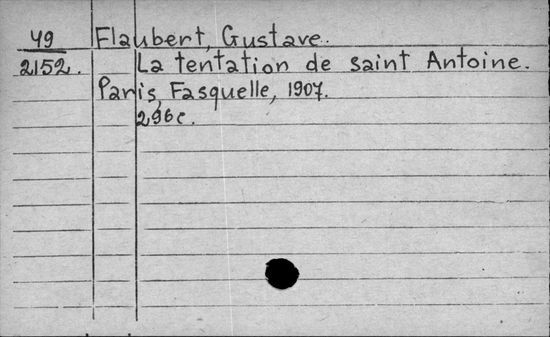 49 Flaubert, Gustave.
2152. La tentation de saint Antoine.
Paris, Fasquelle, 1907.
296c.